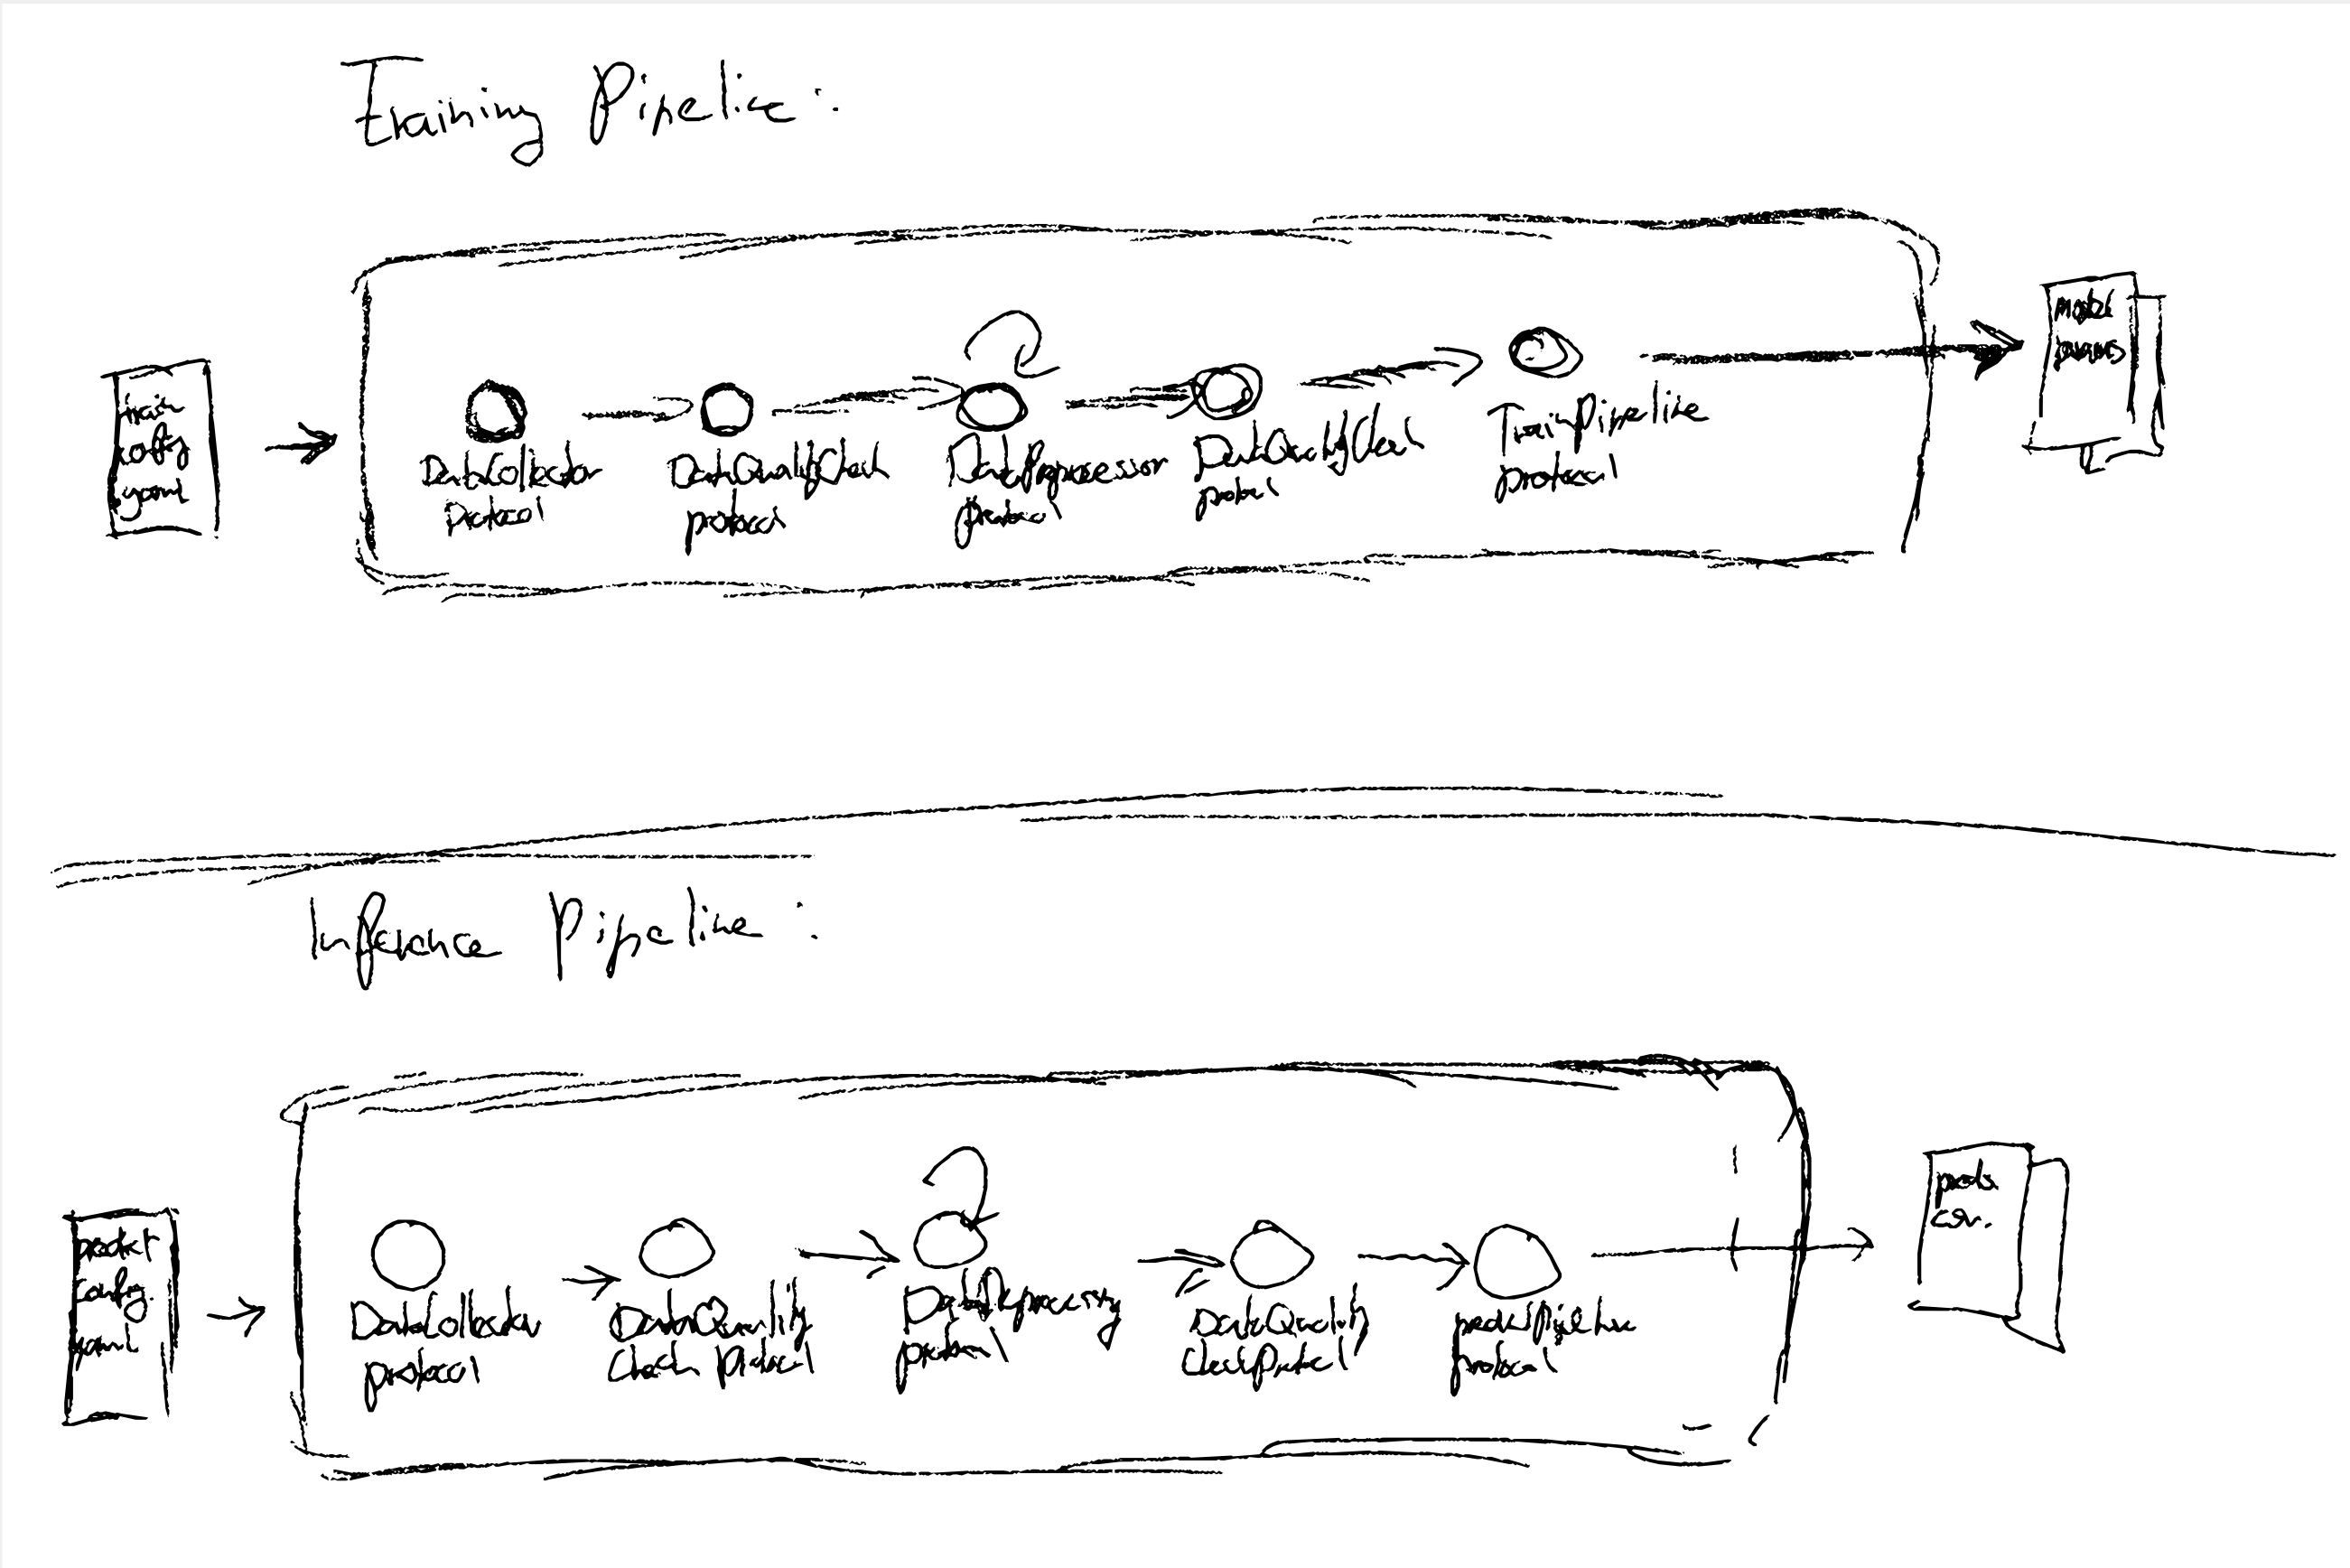 Training Pipeline:
train
config
yaml
DataCollector
protocol
DataQualityCheck
protocol
DataPreprocessor
protocol
DataQualityCheck
protocol
TrainPipeline
protocol
model
params
Inference Pipeline:
predict
config.
yaml
DataCollector
protocol
DataQuality
Check Protocol
protocol
DataQuality
CheckProtocol
predictPipeline
protocol
preds
csv.